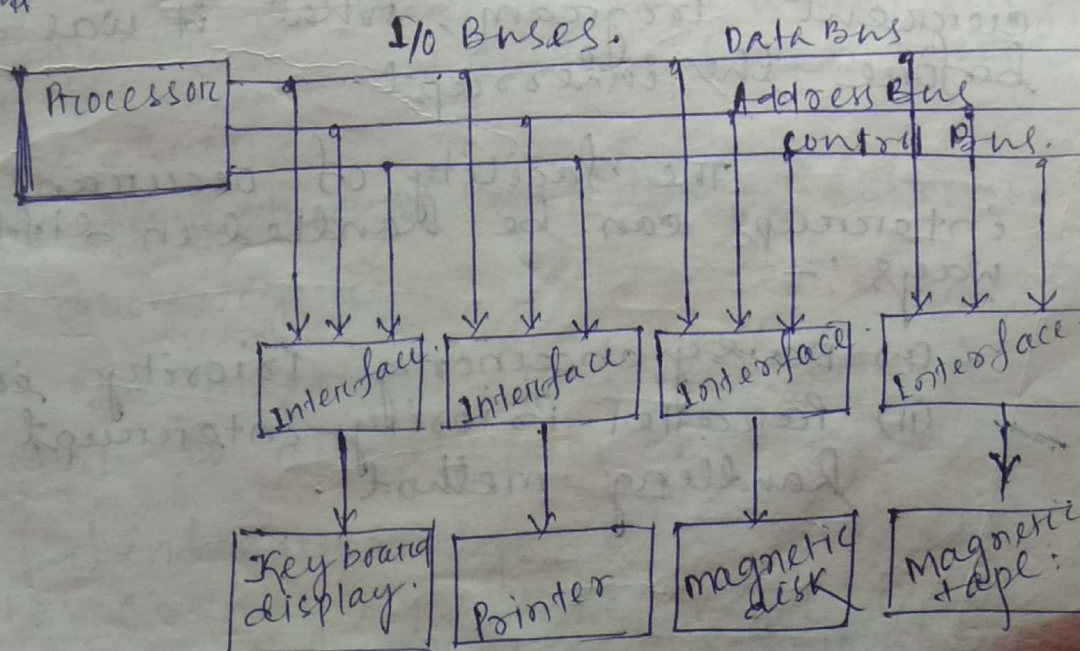 I/O Buses.
Data Bus
Processor
Address Bus
control Bus.
Interface
Interface
Interface
Interface
Keyboard
display.
Printer
magnetic
disk
Magnetic
tape: